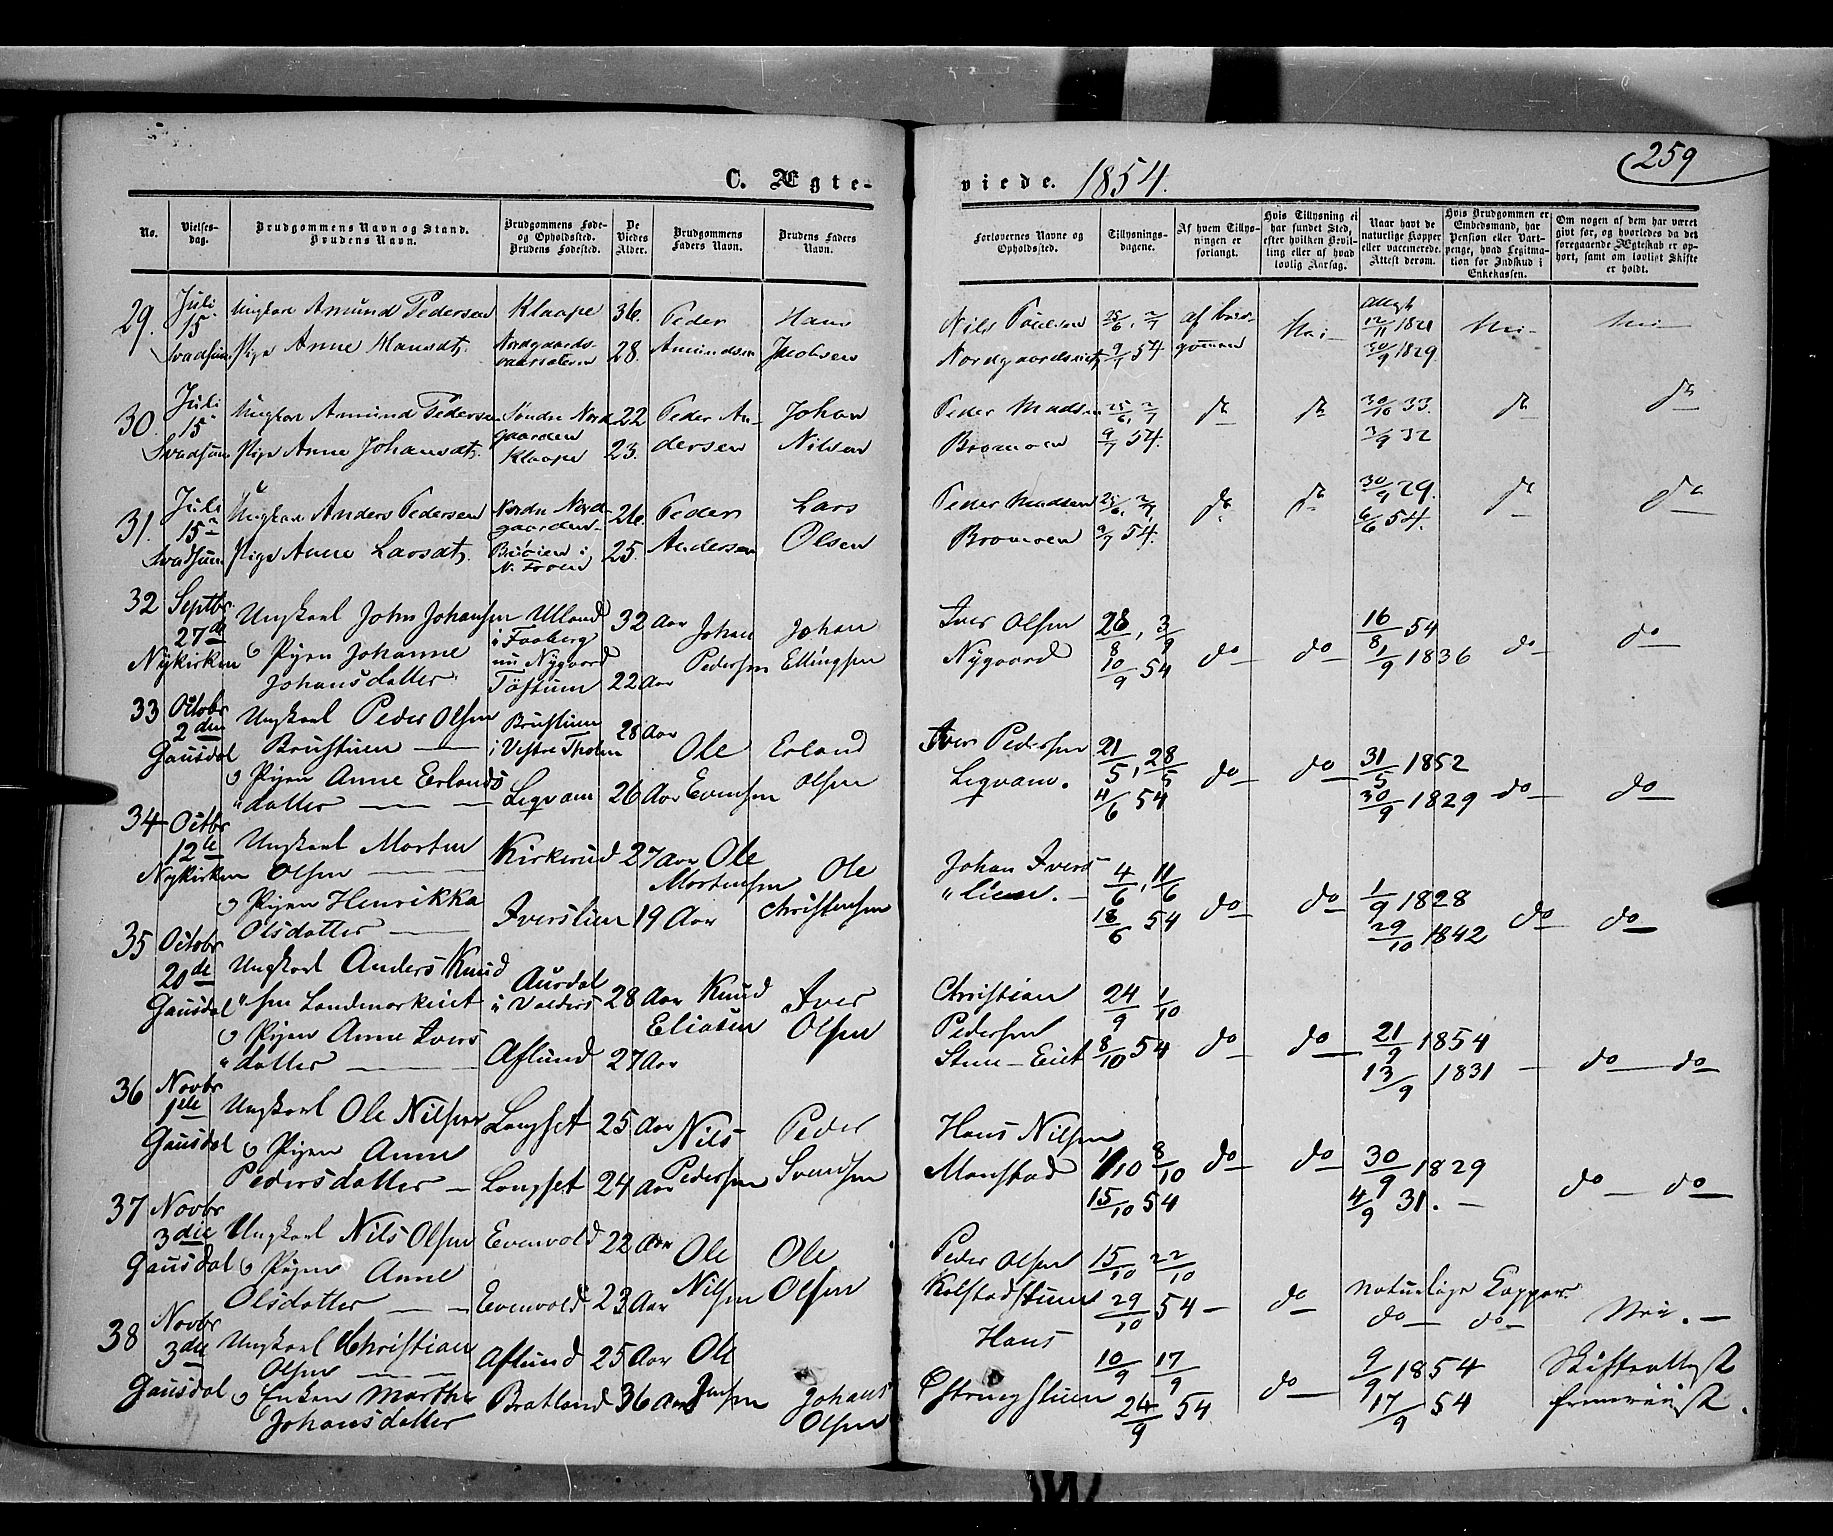 259
C. Ægte-
viede. 1854.
No.
Vielses-
dag.
Brudgommens Navn og Stand.
Brudens Navn.
Brudgommens Føde-
og Opholdssted.
Brudens Fødested.
De
Viedes
Alder.
Brudgommens
Faders Navn.
Brudens Faders
Navn.
Forlovernes Navne og
Opholdssted.
Tillysnings-
dagene.
Af hvem Tillys-
ningen er
forlangt.
Hvis Tillysning ei
har fundet Sted,
efter hvilken Bevil-
ling eller af hvad
lovlig Aarsag.
Naar havt de
naturlige Kopper
eller vaccinerede.
Attest derom.
Hvis Brudgommen er
Embedsmand, har
Pension eller Vart-
penge, hvad Legitima-
tion for Indskud i
Enkekassen.
Om nogen af dem har været
givt før, og hvorledes da det
foregaaende Ægteskab er op-
hørt, samt om lovligt Skifte
er holdt.
29. Juli 15 Svadsum
Ungkar Amund Pedersen Klaape 36. Peder Amundsen
Pige Anne Hansdt. 28. Hans Jacobsen
Nils Poulsen 25/6, 2/7 9/7 54 Nei Attest 12/11 1821 30/9 1829 Nei Nei
30. Juli 15 Svadsum
Ungkar Amund Pedersen Søndre Nordgaarden 22 Peder Andersen
Pige Anne Johansdt. Klaape 23. Johan Nilsen
Peder Madsen Bromoen 25/6, 2/7 9/7 54. do do 30/10 33. 3/9 32 do do
31. Juli 15 Svadsum
Ungkar Anders Pedersen Nordre Nordgaarden 26. Peder Andersen
Pige Anne Larsdt. i N. Froen 25. Lars Olsen
Peder Madsen Bromoen 25/6, 2/7, 9/7 54. do do 30/9 29. 6/6 54. do do
32 Septbr 27de Nykirken
Ungkarl John Johansen Ulland i Faaberg nu Nygaard 32 Aar Johan Pedersen
& Pigen Johanne Johansdatter. Töstum 22 Aar Johan Ellingsen
Iver Olsen Nygaard 28/8, 3/9 10/9 54 do do 16/8 54 1/9 1836 do do
33 Octobr 2den Gausdal
Ungkarl Peder Olsen Brustuen Brustuen i Vestre Thoten 28 Aar Ole Evensen
& Pigen Anne Erlands datter Legvam 26 Aar Erland Olsen
Iver Pedersen Legvam. 21/5, 28/5 4/6 54 do do 31/5 1852 30/9 1829 do do
34 Octbr 12te Nykirken
Ungkarl Morten Olsen Kirkerud 27 Aar Ole Mortensen
& Pigen Henrikka Olsdatter Iverslien 19 Aar Ole Christensen
Johan Ivers lien. 4/6, 11/6 18/6 54 do do 1/9 1828 29/10 1842 do do
35 Octobr 20de Gausdal
Ungkarl Anders Knud sen Landmarkeiet Aurdal i Valders 28 Aar Knud Eliasen
& Pigen Anne Ivers datter Aflund 27 Aar Iver Olsen
Christian Pedersen Steen-Eiet 24/9 1/10 8/10 54 do do 21/9 1854 13/9 1831 do do
36 Novbr 1ste Gausdal
Ungkarl Ole Nilsen Longset 25 Aar Nils Pedersen
& Pigen Anne Pedersdatter Longset 24 Aar Peder Svendsen
Hans Nilsen Monstad 1/10 8/10 15/10 54 do do 30/9 1829 4/9 31. do do
37 Novbr 3die Gausdal
Ungkarl Nils Olsen Evenvold 22 Aar Ole Nilsen
& Pigen Anne Olsdatter Evenvold 23 Aar Ole Olsen
Peder Olsen Kolstadstuen 15/10 22/10 29/10 54 do naturlige Kopper. do do Nei.
38 Novbr 3die Gausdal
Ungkarl Christian Olsen Aflund 25 Aar Ole Jensen
& Enken Marthe Johansdatter Bratland 36 Aar Johans Olsen
Hans 10/9 17/9 24/9 54 do 9/9 1854 17/9 54 Skifteattest fremviist.